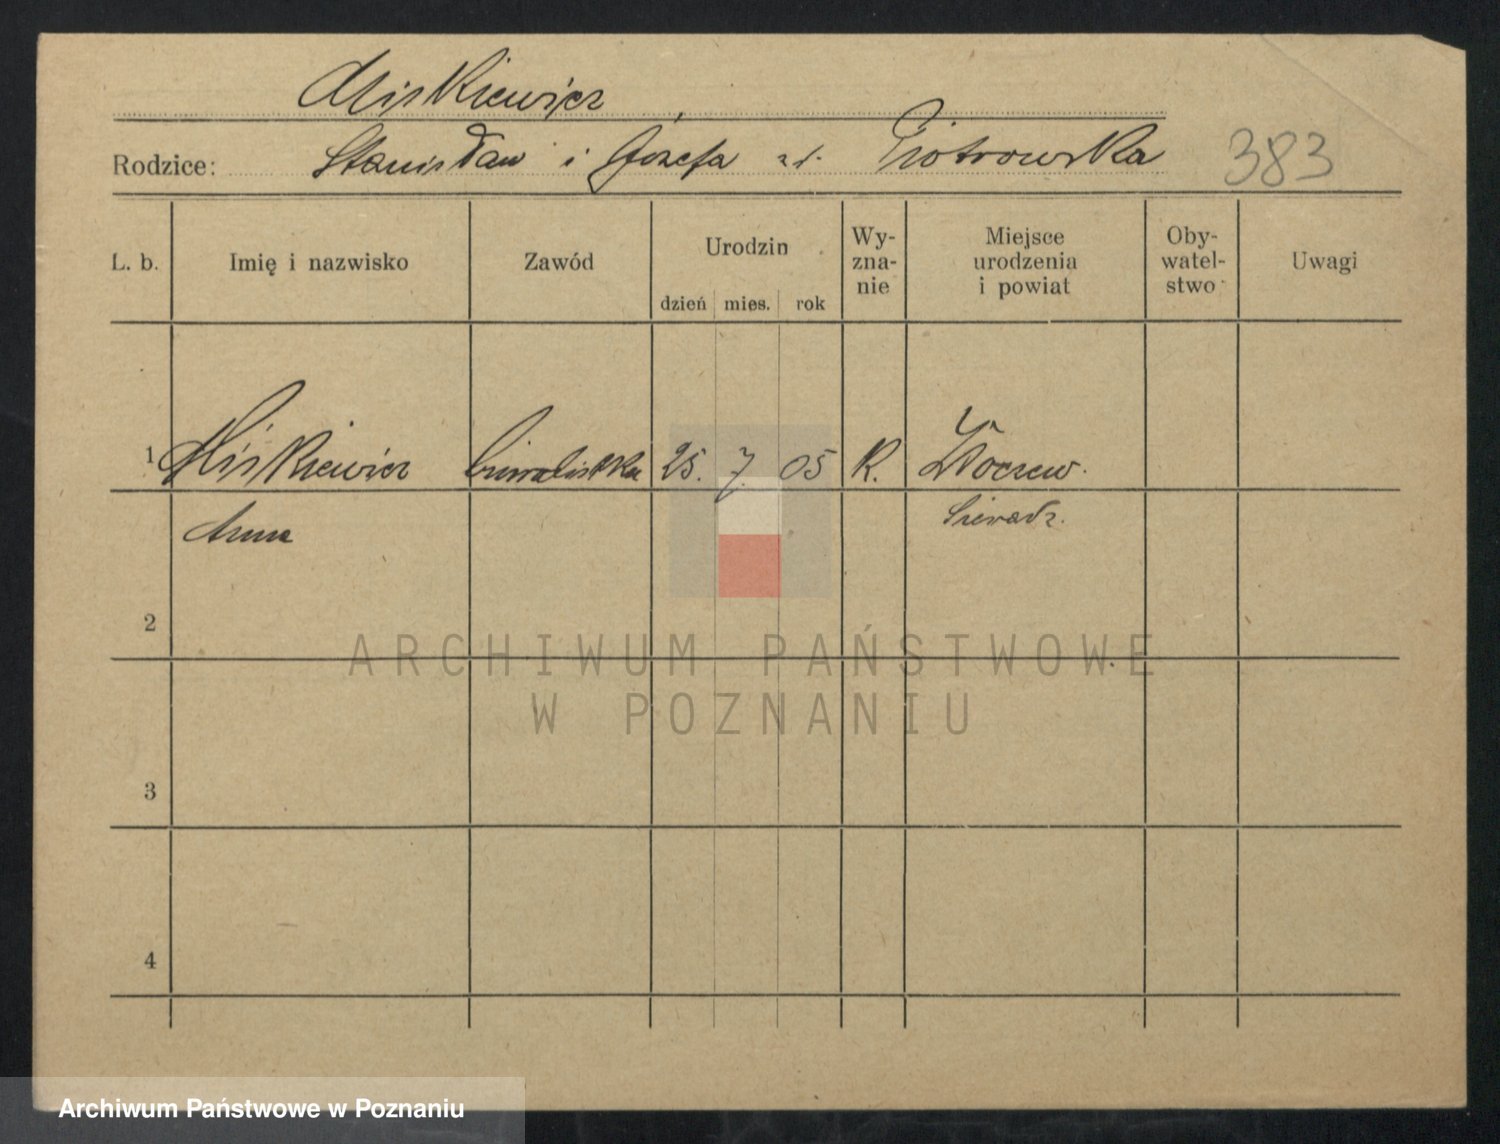 Miśkiewicz
Rodzice: Stanisław i Józefa zd. Piotrowska
383
L. b.
Imię i nazwisko
Zawód
Urodzin
dzień mies. rok
Wy-
zna-
nie
Miejsce
urodzenia
i powiat
Oby-
watel-
stwo
Uwagi
1 Miśkiewicz 25. 7. 05 R.
Anna
Sieradz.
2
3
4
ARCHIWUM PAŃSTWOWE
W POZNANIU
Archiwum Państwowe w Poznaniu